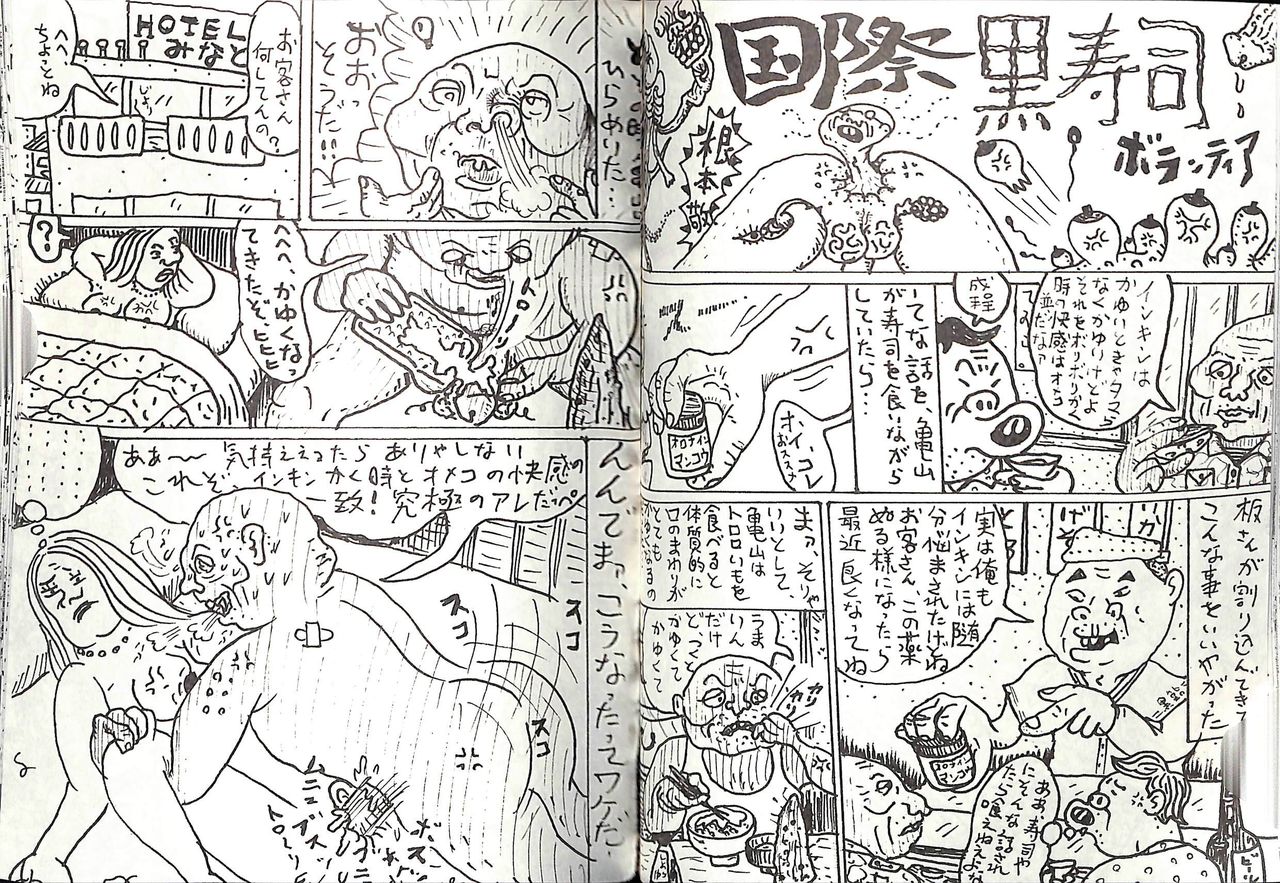 国際黒寿司
ボランティア
根本敬
インキンは
かゆいときゃタマラ
なくかゆいけどよ
それをボリボリかく
時の快感はオメコ
並だなァ
成程
いてな話を、亀山
が寿司を食いながら
していたら…
ホイコレ
おススメよ
オロナイン
マンコウ
板さんが割り込んできて
こんな事をいいやがった
実は俺も
インキンには随
分悩まされたけどね
お客さん、この薬
ぬる様になったら
最近良くなってね
オロナイン
マンコウ
ああ、寿司や
にそんな話され
たら食えねえよな
ビール
まァ、そりゃ
いいとして、
亀山は
トロロいもを
食べると
体質的に
口のまわりが
とてもかゆくなるの
うまいん
だけど
どっっと
かゆくて
かゆくて
カリ
カリ
ひらめいた…
おおっ
そうだ!!
HOTEL
みなと
お客さん
何してんの?
へへ、
ちょっとね
へへへ、かゆくなっ
てきたぞ、ヒヒヒ
トロ〜リ
?
んでまァ、こうなったってワケだ
ああ〜気持ええったらありゃしない
これぞ、インキンかく時とオメコの快感の
一致!究極のアレだっペ
スコ
スコ
スコ